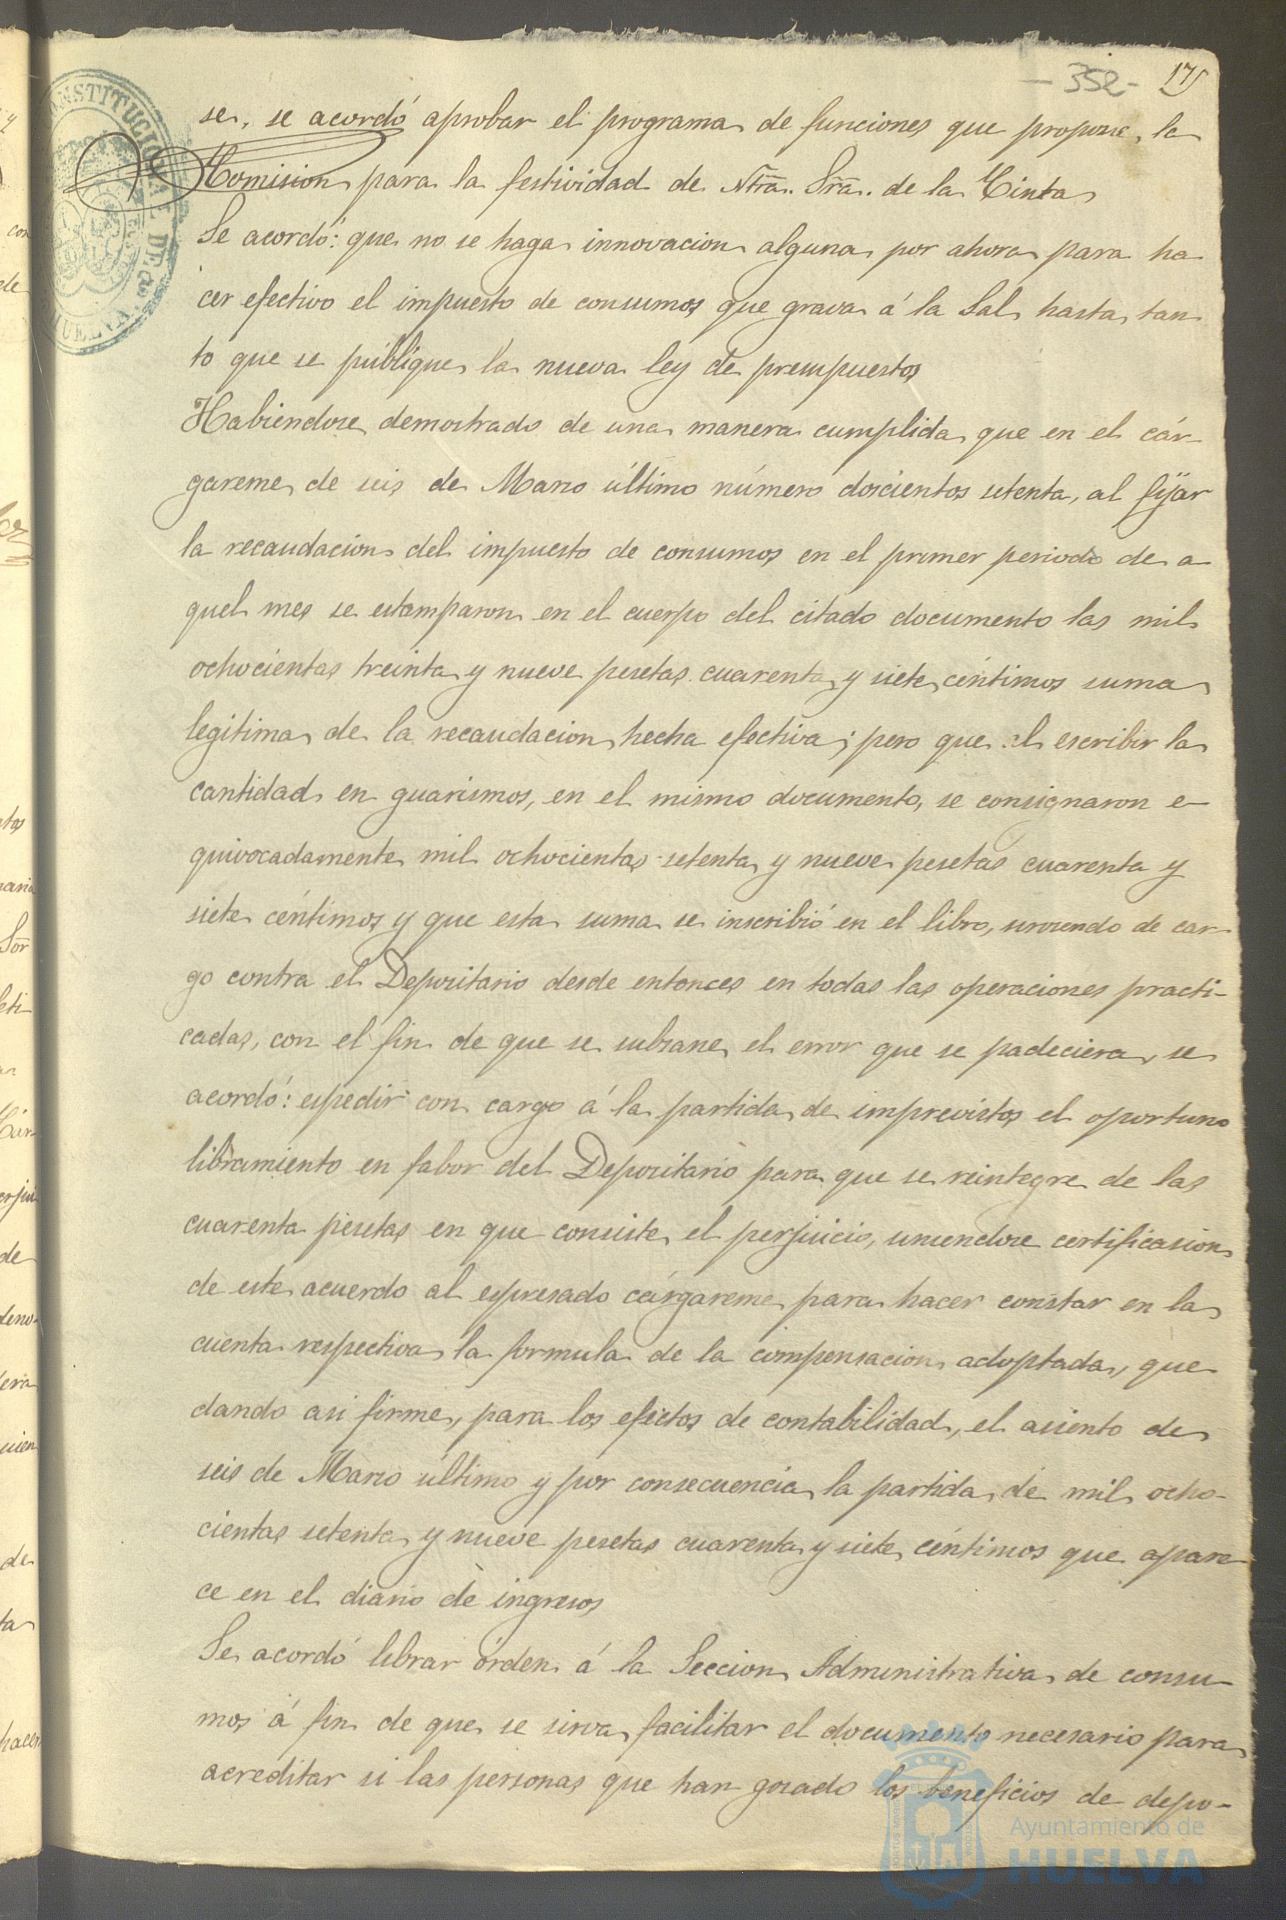 -352- 175
se, se acordó aprobar el programa de funciones que propone la
Comision para la festividad de Ntra. Sra. de la Cinta
Se acordó: que no se haga innovacion alguna por ahora para ha
cer efectivo el impuesto de consumos que grava á la Sal hasta tan
to que se publique la nueva ley de presupuestos
Habiendose demostrado de una manera cumplida que en el cár-
gareme de seis de Marzo último número doscientos setenta, al fijar
la recaudacion del impuesto de consumos en el primer periodo de a-
quel mes se estamparon en el cuerpo del citado documento las mil
ochocientas treinta y nueve pesetas cuarenta y siete céntimos suma
legitima de la recaudacion hecha efectiva; pero que al escribir la
cantidad en guarismos, en el mismo documento, se consignaron e-
quivocadamente mil ochocientas setenta y nueve pesetas cuarenta y
siete céntimos y que esta suma se inscribió en el libro, sirviendo de car-
go contra el Depositario desde entonces en todas las operaciones practi-
cadas, con el fin de que se subsane el error que se padeciera, se
acordó: espedir con cargo á la partida de imprevistos el oportuno
libramiento en fabor del Depositario para que se reintegre de las
cuarenta pesetas en que consiste el perjuicio, uniendose certificacion
de este acuerdo al espresado cárgareme para hacer constar en la
cuenta respectiva la formula de la compensacion adoptada, que
dando asi firme, para los efectos de contabilidad, el asiento de
seis de Marzo último y por consecuencia la partida de mil ocho-
cientas setenta y nueve pesetas cuarenta y siete céntimos que apare
ce en el diario de ingresos
Se acordó librar órden á la Seccion Administrativa de consu-
mos á fin de que se sirva facilitar el documento necesario para
acreditar si las personas que han gozado los beneficios de depo-
CONSTITUCIONAL DE
HUELVA
Ayuntamiento de
HUELVA